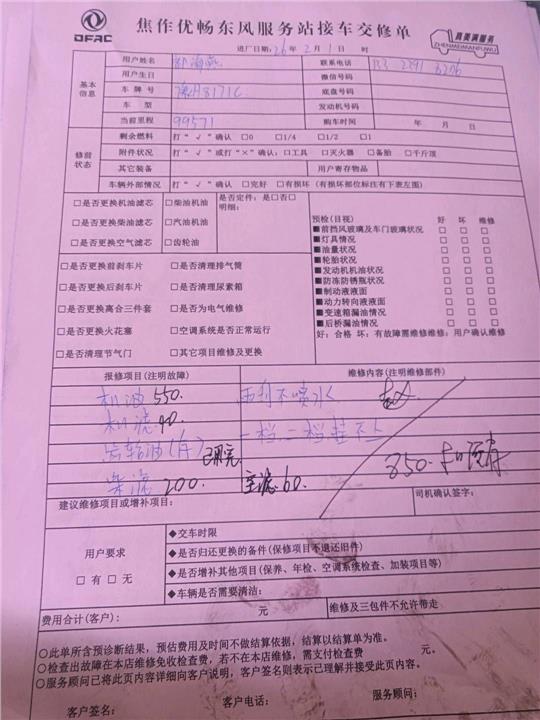 DFAC
焦作优畅东风服务站接车交修单
真美满服务
ZHENMEIMANFUWU
进厂日期：26年2月1日 时
基本信息
用户姓名 联系电话
用户生日 微信号码
车牌号 豫H8171C 底盘号码
车型 发动机号码
当前里程 99571 购车时间 年 月 日
修前状态
剩余燃料 打“√”确认 □0 □1/4 □1/2 □1
附件状况 打“√”或打“×”确认：□工具 □灭火器 □备胎 □千斤顶
其它装备 用户寄存物品
车辆外部情况 打“√”确认 □完好 □有损坏（有损坏部位标注有下表左图）
□是否更换机油滤芯 □柴油机油 是否定件：是□否□
明细：
□是否更换柴油滤芯 □汽油机油
□是否更换空气滤芯 □齿轮油
□是否更换前刹车片 □是否清理排气筒
□是否更换后刹车片 □是否清理尿素箱
□是否更换离合三件套 □是否为电气维修
□是否更换火花塞 □空调系统是否正常运行
□是否清理节气门 □其它项目维修及更换
预检（目视） 好 坏 维修
■前挡风玻璃及车门玻璃状况 □ □ □
■灯具情况 □ □ □
■油量状况 □ □ □
■轮胎状况 □ □ □
■发动机机油状况 □ □ □
■防冻防锈瓶状况 □ □ □
■制动液液面 □ □ □
■动力转向液液面 □ □ □
■变速箱漏油情况 □ □ □
■后桥漏油情况 □ □ □
好：合格 坏：有故障需维修维修：用户确认维修
报修项目（注明故障） 维修内容（注明维修部件）
机油 550. 雨刮不喷水
机滤 90
齿轮油（有）已用完 一档二档挂不上
柴滤 200. 主滤 60. 850.
建议维修项目或增补项目： 司机确认签字：
用户要求
□有 □无
◆交车时限
◆是否归还更换的备件（保修项目不退还旧件）
◆是否增补其他项目（保养、年检、空调系统检查、加装项目等）
◆车辆是否需要清洁：
费用合计（客户）： 元 维修及三包件不允许带走
○此单所含预诊断结果，预估费用及时间不做结算依据，结算以结算单为准。
○检查出故障在本店维修免收检查费，若不在本店维修，需支付检查费 元。
○服务顾问已将此页内容详细向客户说明，客户签名则表示已理解并接受此页内容。
客户签名： 客户电话： 服务顾问：